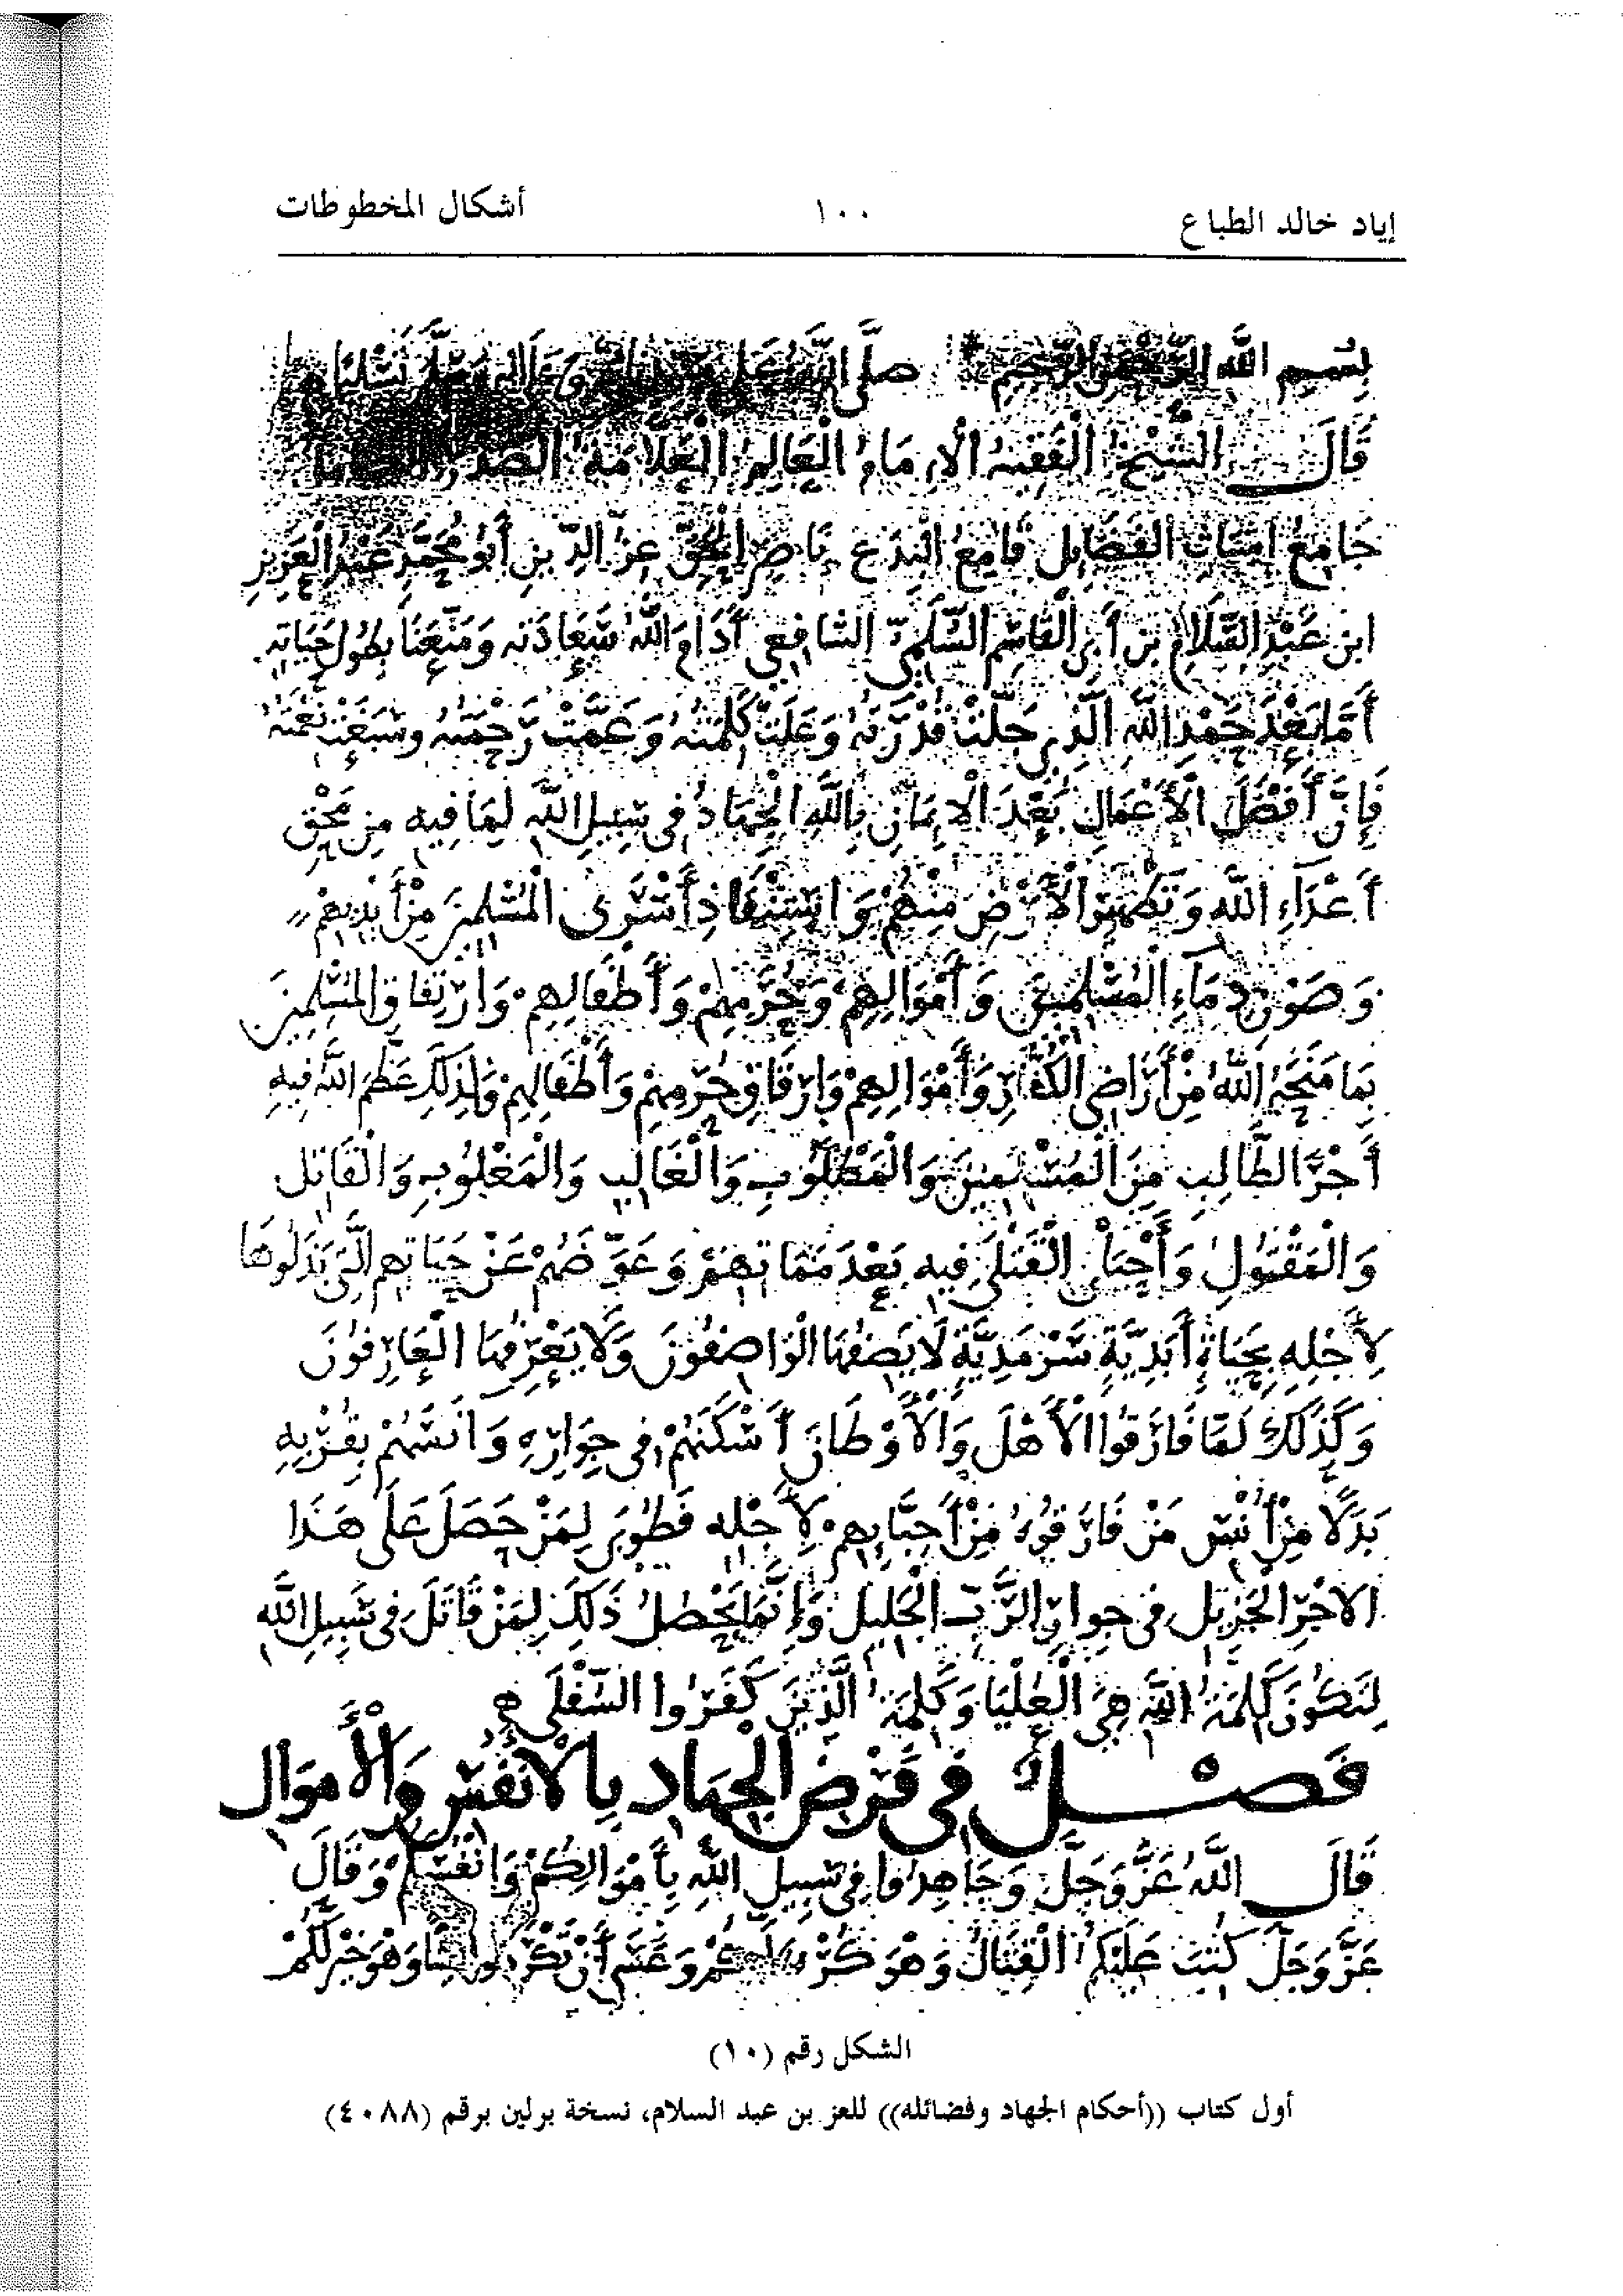 إياد خالد الطباع
١٠٠
أشكال المخطوطات
بِسْمِ اللَّه الرَّحْمَنِ الرَّحِيمِ صلَّى اللَّهُ عَلَى وَآلِهِ وَسَلَّم تَسْلِيمًا
قَالَ الشَّيْخُ الْفَقِيهُ الْإِمَامُ الْعَالِمُ الْعَلَّامَةُ الصَّدْرُ
جَامِعُ أشتات الْفَضَايِل قَامِعُ الْبِدَعِ نَاصِرُ الْحَقِّ عِزُّ الدِّينِ أَبُو مُحَمَّدٍ عَبْدُ الْعَزِيزِ
ابن عَبْدِ السَّلَامِ بن أَبِي الْقَاسِمِ السُّلَمِيّ الشَّافِعِي أَدَامَ اللَّهُ سَعَادَتَه وَمَتَّعَنَا بِطُولِ حَيَاتِهِ
أَمَّا بَعْدَ حَمْدِ اللَّهِ الَّذِي جَلَّتْ قُدْرَتُهُ وَعَلَتْ كَلِمَتُهُ وَعَمَّتْ رَحْمَتُهُ وَسَبَغَتْ نِعْمَتُهُ
فَإِنَّ أَفْضَلَ الْأَعْمَالِ بَعْدَ الْإِيمَانِ بِاللَّهِ الْجِهَادُ فِي سَبِيلِ اللَّهِ لِمَا فِيهِ مِن مَحْقِ
أَعْدَآءِ اللَّه وَتَطْهِيرِ الْأَرْضِ مِنْهُمْ وَاسْتِنْقَاذِ أَسْرَى الْمُسْلِمِينَ مِنْ أَيْدِيهِمْ
وَصَوْنِ دِمَاءِ الْمُسْلِمِينَ وَأَمْوَالِهِمْ وَحُرَمِهِمْ وَأَطْفَالِهِمْ وَارْتِفَاقِ الْمُسْلِمِينَ
بِمَا مَنَحَهُ اللَّهُ مِنْ أَرَاضِي الْكُفَّارِ وَأَمْوَالِهِمْ وَإِرْقَاقِ حُرَمِهِمْ وَأَطْفَالِهِمْ وَلِذَلِكَ عَظَّمَ اللَّهُ فِيهِ
أَجْرَ الطَّالِبِ مِنَ الْمُسْلِمِينَ وَالْمَطْلُوبِ وَالْغَالِبِ وَالْمَغْلُوبِ وَالْقَاتِلِ
وَالْمَقْتُولِ وَأَحْيَا الْقَتْلَى فِيهِ بَعْدَ مَمَاتِهِمْ وَعَوَّضَهُمْ عَنْ حَيَاتِهِمِ الَّتِي بَذَلُوهَا
لِأَجْلِهِ بِحَيَاةٍ أَبَدِيَّةٍ سَرْمَدِيَّةٍ لَا يَصِفُهَا الْوَاصِفُونَ وَلَا يَعْرِفُهَا الْعَارِفُونَ
وَكَذَلِكَ لَمَّا فَارَقُوا الْأَهْلَ وَالْأَوْطَانَ أَسْكَنَهُمْ فِي جِوَارِهِ وَآنَسَهُمْ بِقُرْبِهِ
بَدَلًا مِنْ أُنْسِ مَنْ فَارَقُوهُ مِنْ أَحِبَّائِهِمْ لِأَجْلِهِ فَطُوبَى لِمَنْ حَصَلَ عَلَى هَذَا
الأجْرِ الْجَزِيلِ فِي جِوَارِ الرَّبِّ الْجَلِيلِ وَإِنَّمَا يَحْصُلُ ذَلِكَ لِمَنْ قَاتَلَ فِي سَبِيلِ اللَّهِ
لِتَكُونَ كَلِمَةُ اللَّهِ هِيَ الْعُلْيَا وَكَلِمَةُ الَّذِينَ كَفَرُوا السُّفْلَى
فَصْلٌ فِي فَرْضِ الْجِهَادِ بِالْأَنْفُسِ وَالْأَمْوَالِ
قَالَ اللَّهُ عَزَّ وَجَلَّ وَجَاهِدُوا فِي سَبِيلِ اللَّهِ بِأَمْوَالِكُمْ وَأَنْفُسِكُمْ وَقَالَ
عَزَّ وَجَلَّ كُتِبَ عَلَيْكُمُ الْقِتَالُ وَهُوَ كُرْهٌ لَكُمْ وَعَسَى أَنْ تَكْرَهُوا شَيْئًا وَهُوَ خَيْرٌ لَكُمْ
الشكل رقم (١٠)
أول كتاب ((أحكام الجهاد وفضائله)) للعز بن عبد السلام، نسخة برلين برقم (٤٠٨٨)